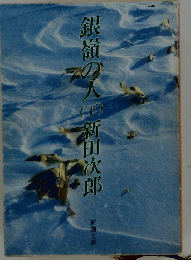 銀嶺の人(上)新田次郎
新潮文庫